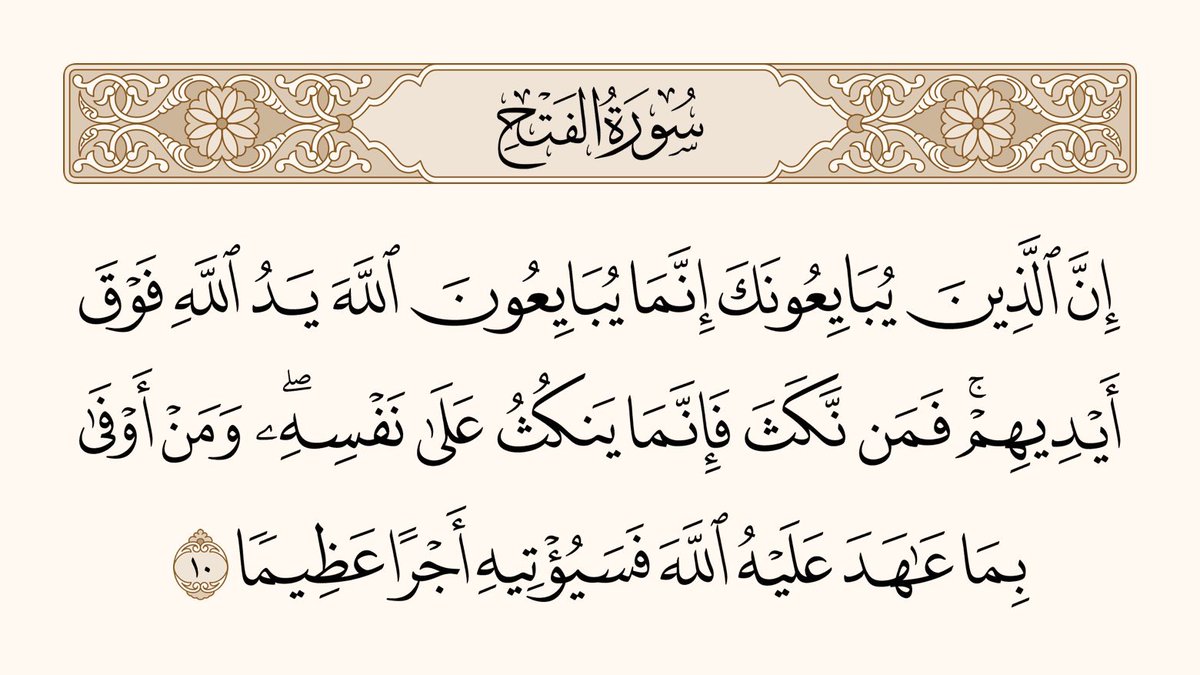 سُورَةُ الْفَتْحِ
إِنَّ ٱلَّذِينَ يُبَايِعُونَكَ إِنَّمَا يُبَايِعُونَ ٱللَّهَ يَدُ ٱللَّهِ فَوْقَ
أَيْدِيهِمْۚ فَمَن نَّكَثَ فَإِنَّمَا يَنكُثُ عَلَىٰ نَفْسِهِۦۖ وَمَنْ أَوْفَىٰ
بِمَا عَـٰهَدَ عَلَيْهُ ٱللَّهَ فَسَيُؤْتِيهِ أَجْرًا عَظِيمًا ١٠